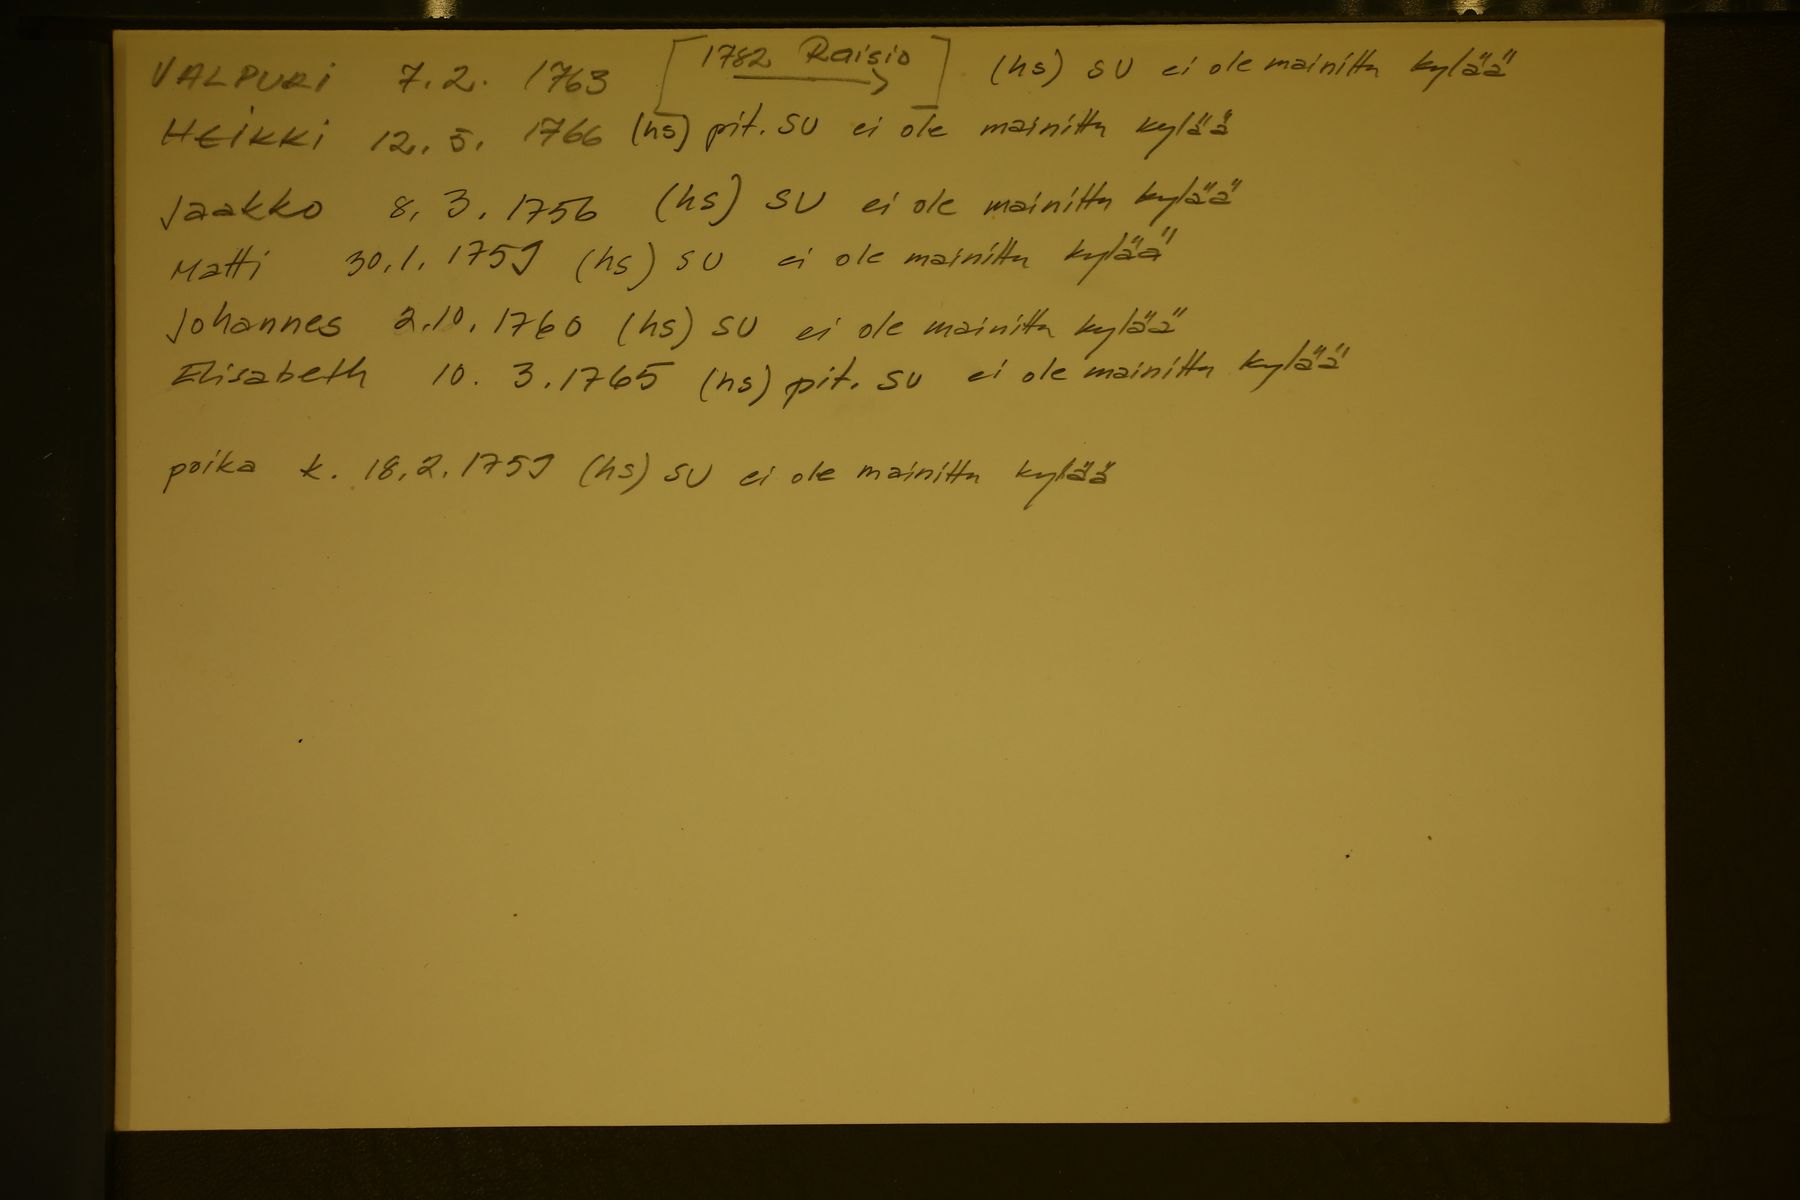 VALPURI 7.2. 1763 [1782 Raisio →] (hs) SU ei ole mainittu kylää
HEIKKI 12.5. 1766 (hs) pit. SU ei ole mainittu kylää
Jaakko 8.3.1756 (hs) SU ei ole mainittu kylää
Matti 30.1.1759 (hs) SU ei ole mainittu kylää
Johannes 2.10.1760 (hs) SU ei ole mainittu kylää
Elisabeth 10.3.1765 (hs) pit. SU ei ole mainittu kylää
poika k. 18.2.1759 (hs) SU ei ole mainittu kylää